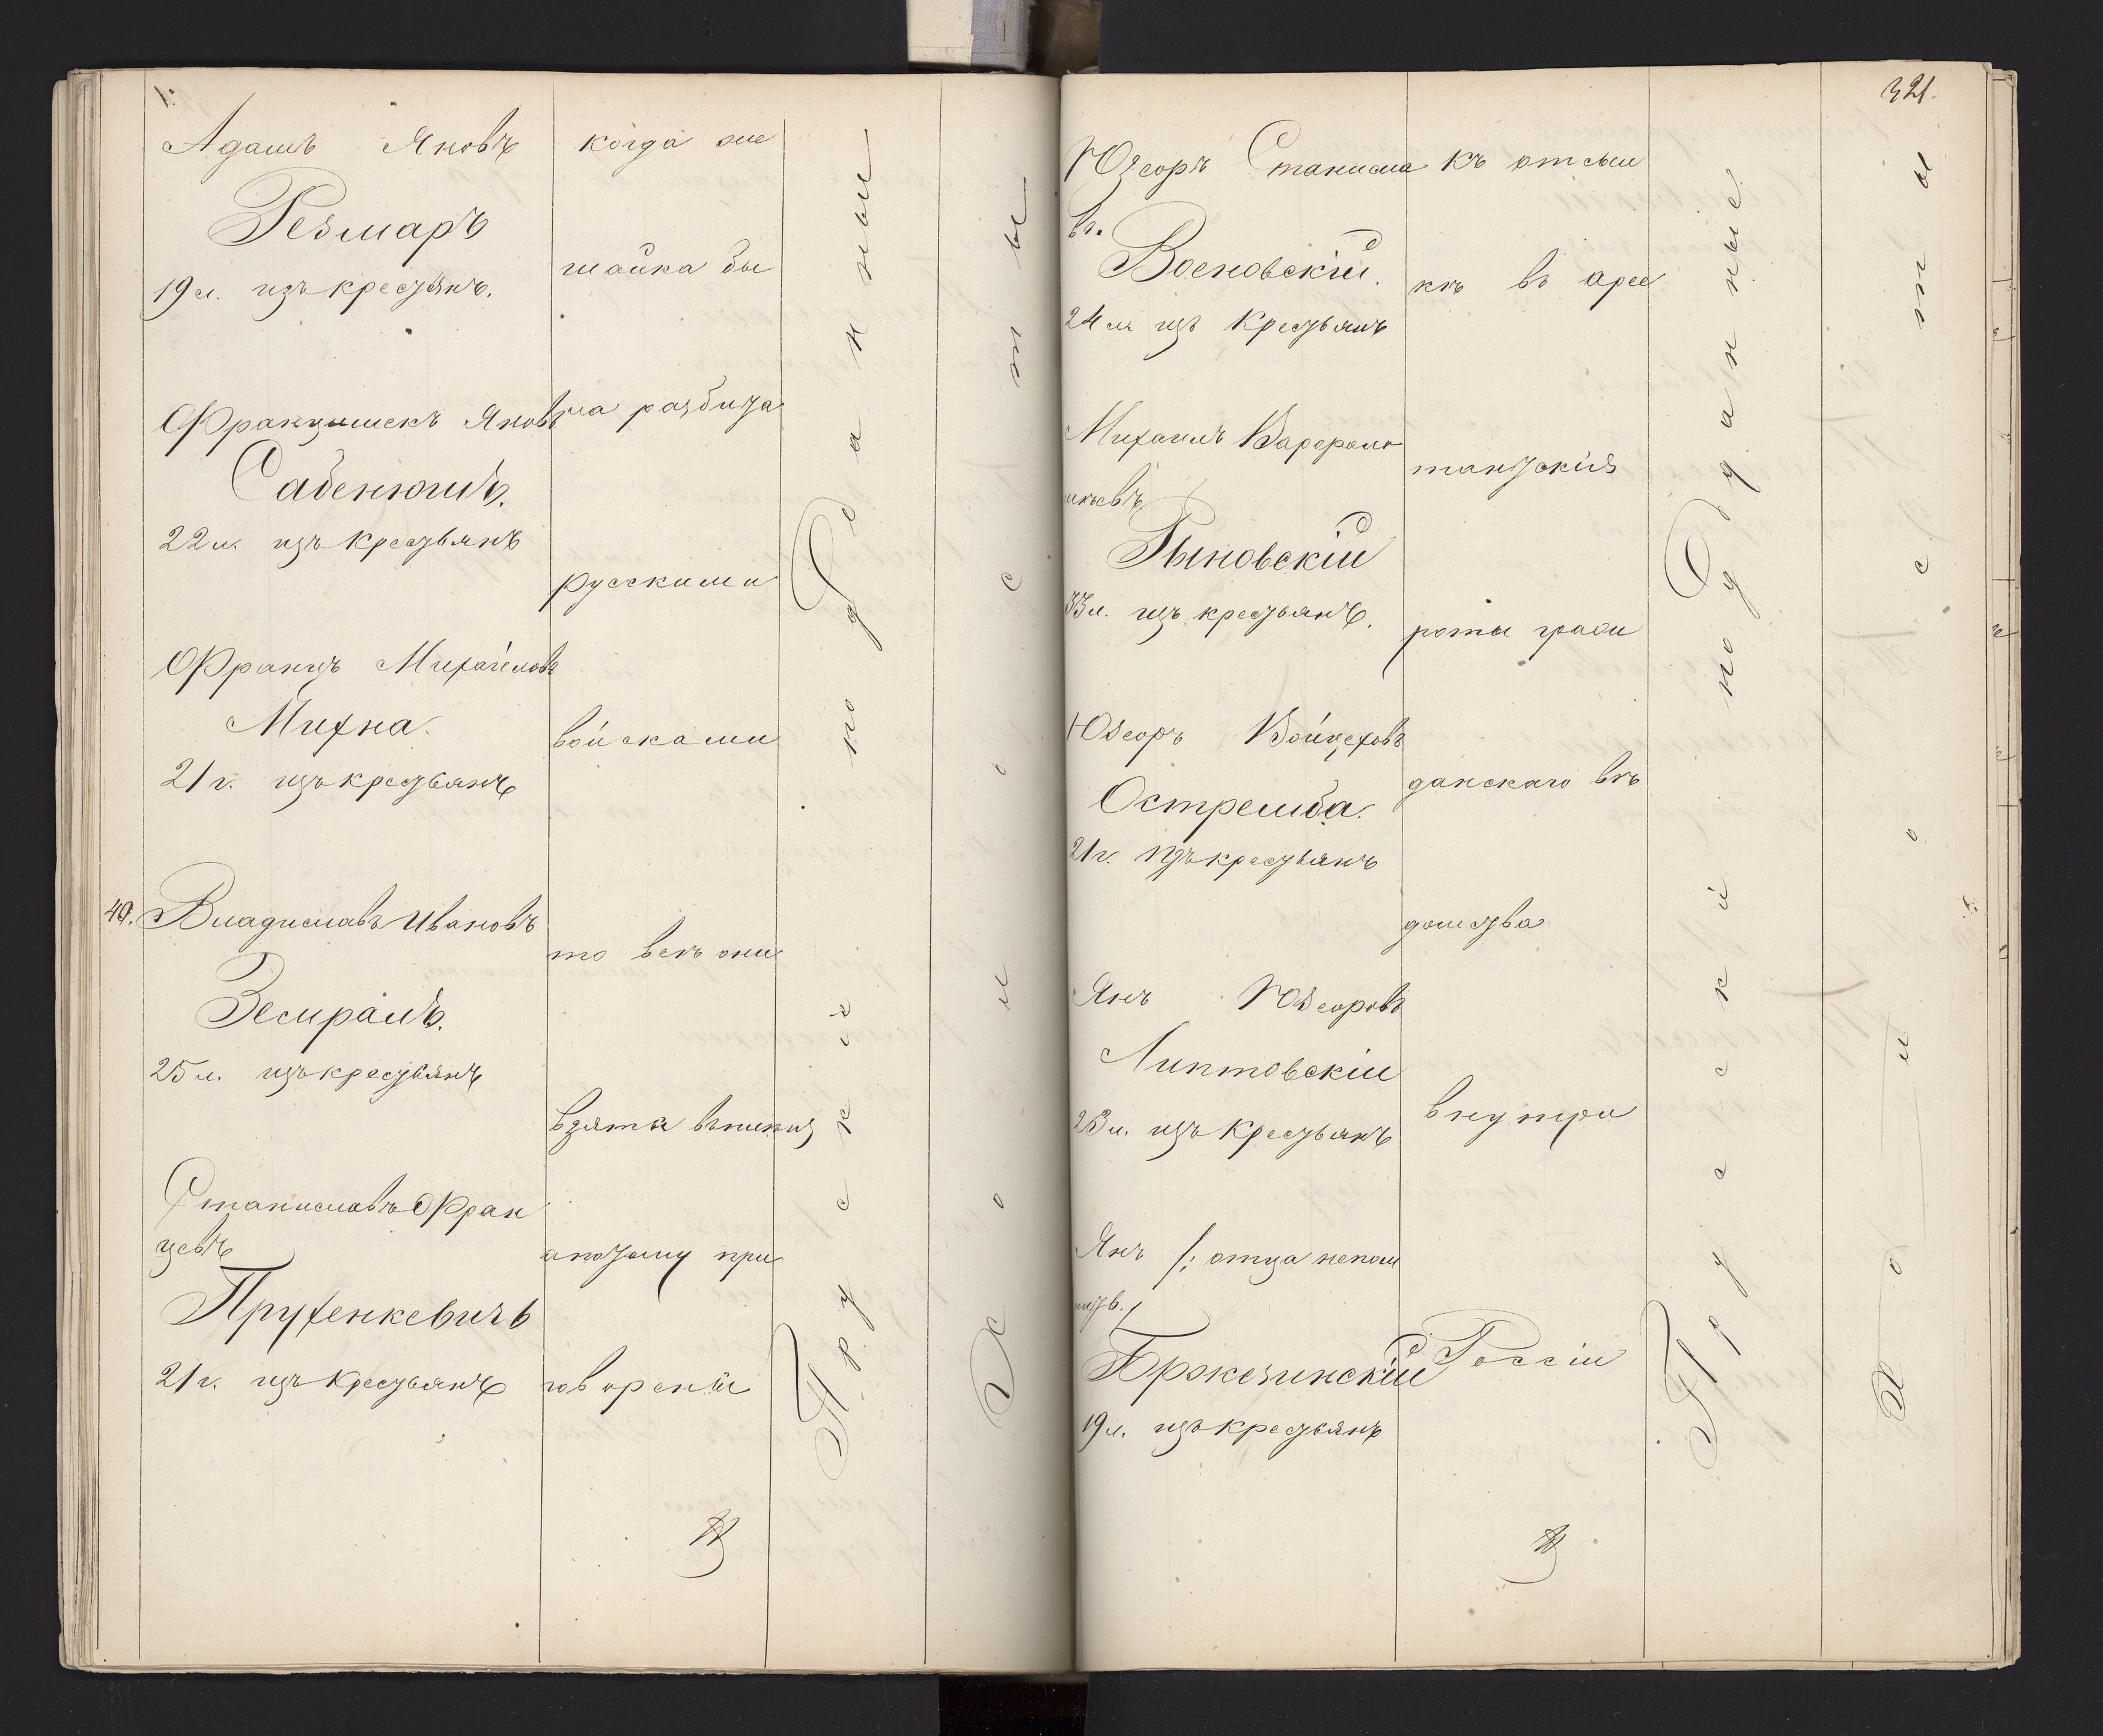 Адамъ Яновъ
Гезмаръ
19 л. изъ крестьянъ.
Францишекъ Яновъ
Сабенюшъ.
22 л. изъ крестьянъ
Францъ Михайловъ
Михна.
21 г. изъ крестьянъ
40. Владиславъ Ивановъ
25 л. изъ крестьянъ
Станиславъ Фран
цевъ
Прухенкевичъ
21 г. изъ крестьянъ
когда же
шайка бы
ла разбита
русскими
войсками
то всѣ они
взяты въ плѣнъ
а потому при
говорены
Прусскіе подданные
Холосты
321.
Юзефъ Станисла
въ.
Восновскій.
24 л изъ крестьянъ
Михаилъ Варфоло
мѣевъ
Рыновскій
33 л. изъ крестьянъ.
Юзефъ Войцеховъ
Острешба.
21 г. изъ крестьянъ
Янъ Юзефовъ
Липтовскій
23 л. изъ крестьянъ
Янъ /: отца непом
нитъ. /
Бржезинскій
19 л. изъ крестьянъ
къ отсыл
кѣ въ аре
стантскія
роты граж
данскаго вѣ
домства
внутри
Россіи
Прусскій подданные
Холосты